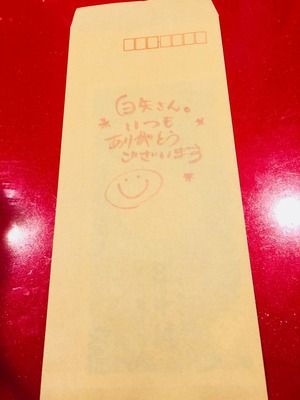 白矢さん。
いつも
ありがとう
ございます